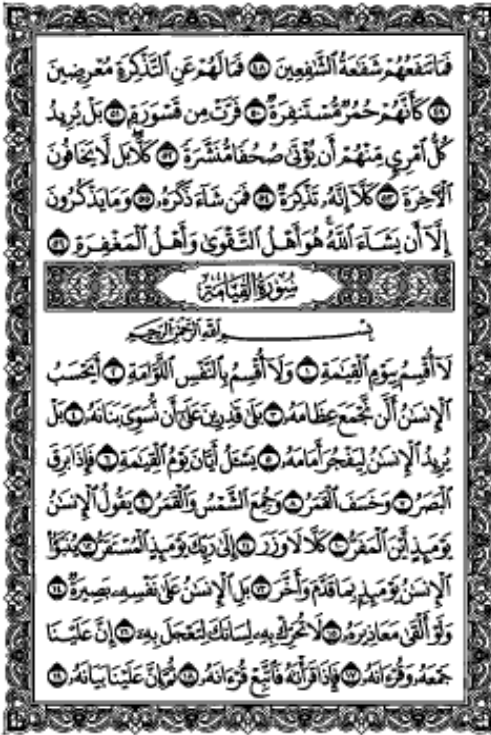 فَمَا تَنفَعُهُمْ شَفَٰعَةُ ٱلشَّٰفِعِينَ ٤٨ فَمَا لَهُمْ عَنِ ٱلتَّذْكِرَةِ مُعْرِضِينَ
٤٩ كَأَنَّهُمْ حُمُرٌ مُّسْتَنفِرَةٌ ٥٠ فَرَّتْ مِن قَسْوَرَةٍۭ ٥١ بَلْ يُرِيدُ
كُلُّ ٱمْرِئٍ مِّنْهُمْ أَن يُؤْتَىٰ صُحُفًا مُّنَشَّرَةً ٥٢ كَلَّا ۖ بَل لَّا يَخَافُونَ
ٱلْءَاخِرَةَ ٥٣ كَلَّآ إِنَّهُۥ تَذْكِرَةٌ ٥٤ فَمَن شَآءَ ذَكَرَهُۥ ٥٥ وَمَا يَذْكُرُونَ
إِلَّآ أَن يَشَآءَ ٱللَّهُ ۚ هُوَ أَهْلُ ٱلتَّقْوَىٰ وَأَهْلُ ٱلْمَغْفِرَةِ ٥٦
سُورَةُ القِيَامَةِ
بِسْمِ ٱللَّهِ ٱلرَّحْمَٰنِ ٱلرَّحِيمِ
لَآ أُقْسِمُ بِيَوْمِ ٱلْقِيَٰمَةِ ١ وَلَآ أُقْسِمُ بِٱلنَّفْسِ ٱللَّوَّامَةِ ٢ أَيَحْسَبُ
ٱلْإِنسَٰنُ أَلَّن نَّجْمَعَ عِظَامَهُۥ ٣ بَلَىٰ قَٰدِرِينَ عَلَىٰٓ أَن نُّسَوِّىَ بَنَانَهُۥ ٤ بَلْ
يُرِيدُ ٱلْإِنسَٰنُ لِيَفْجُرَ أَمَامَهُۥ ٥ يَسْـَٔلُ أَيَّانَ يَوْمُ ٱلْقِيَٰمَةِ ٦ فَإِذَا بَرِقَ
ٱلْبَصَرُ ٧ وَخَسَفَ ٱلْقَمَرُ ٨ وَجُمِعَ ٱلشَّمْسُ وَٱلْقَمَرُ ٩ يَقُولُ ٱلْإِنسَٰنُ
يَوْمَئِذٍ أَيْنَ ٱلْمَفَرُّ ١٠ كَلَّا لَا وَزَرَ ١١ إِلَىٰ رَبِّكَ يَوْمَئِذٍ ٱلْمُسْتَقَرُّ ١٢ يُنَبَّؤُا۟
ٱلْإِنسَٰنُ يَوْمَئِذٍۭ بِمَا قَدَّمَ وَأَخَّرَ ١٣ بَلِ ٱلْإِنسَٰنُ عَلَىٰ نَفْسِهِۦ بَصِيرَةٌ ١٤
وَلَوْ أَلْقَىٰ مَعَاذِيرَهُۥ ١٥ لَا تُحَرِّكْ بِهِۦ لِسَانَكَ لِتَعْجَلَ بِهِۦٓ ١٦ إِنَّ عَلَيْنَا
جَمْعَهُۥ وَقُرْءَانَهُۥ ١٧ فَإِذَا قَرَأْنَٰهُ فَٱتَّبِعْ قُرْءَانَهُۥ ١٨ ثُمَّ إِنَّ عَلَيْنَا بَيَانَهُۥ ١٩